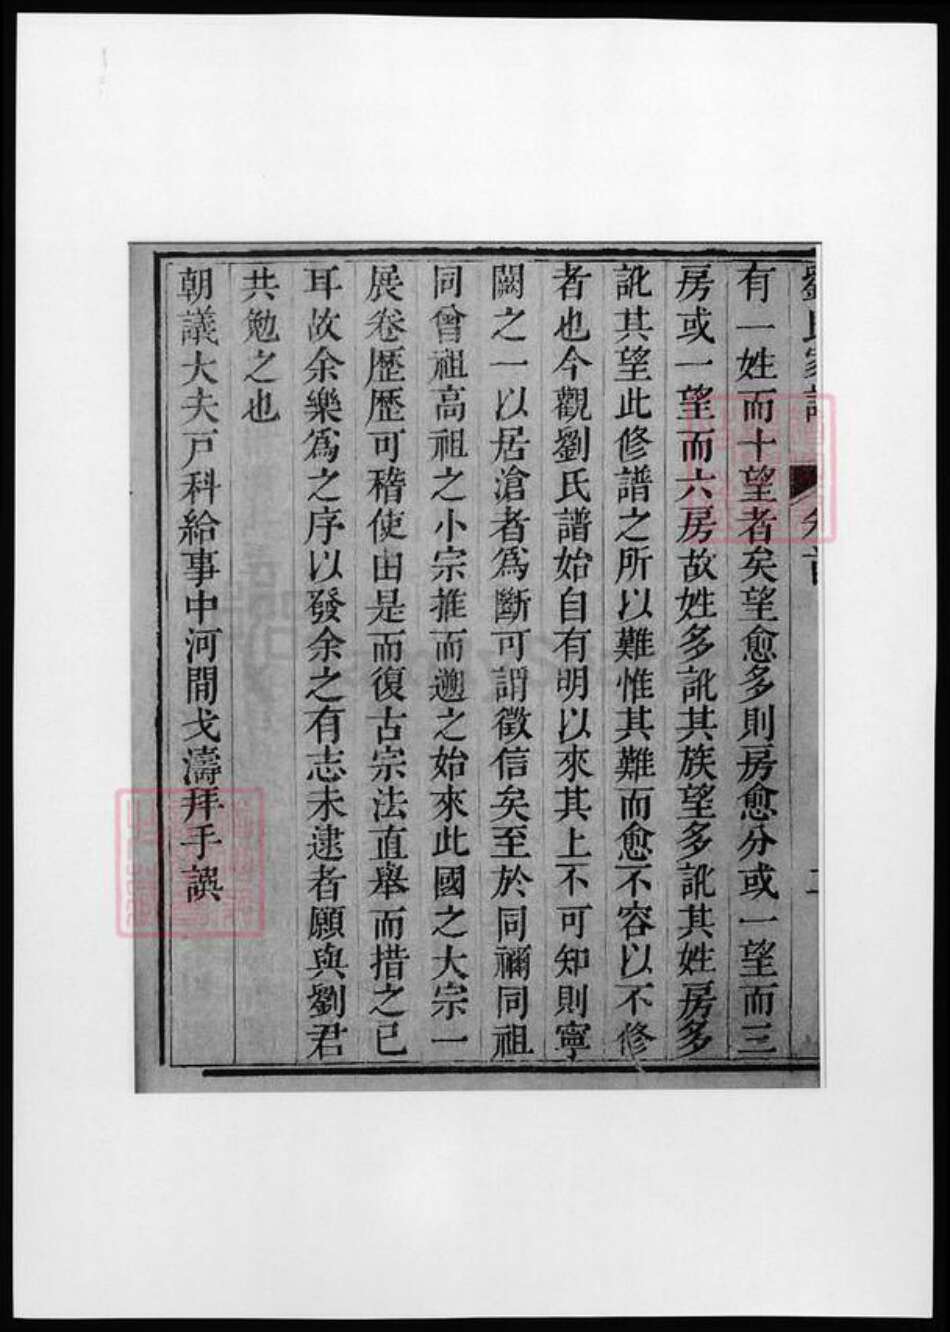 劉氏家譜 卷首 二
有一姓而十望者矣望愈多則房愈分或一望而三
房或一望而六房故姓多訛其族望多訛其姓房多
訛其望此修譜之所以難惟其難而愈不容以不修
者也今觀劉氏譜始自有明以來其上不可知則寧
闕之一以居滄者為斷可謂徵信矣至於同禰同祖
同曾祖高祖之小宗推而遡之始來此國之大宗一
展卷歷歷可稽使由是而復古宗法直舉而措之已
耳故余樂為之序以發余之有志未逮者願與劉君
共勉之也
朝議大夫戶科給事中河間戈濤拜手譔